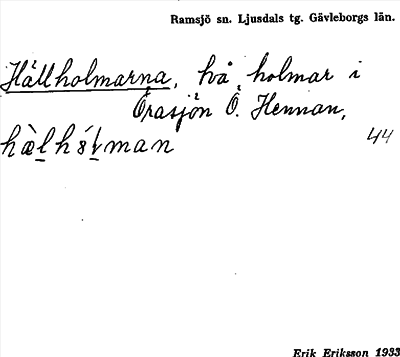 Ramsjö sn. Ljusdals tg. Gävleborgs län.
Hällholmarna, två holmar i
Örasjön Ö. Hennan,
44
Erik Eriksson 1933